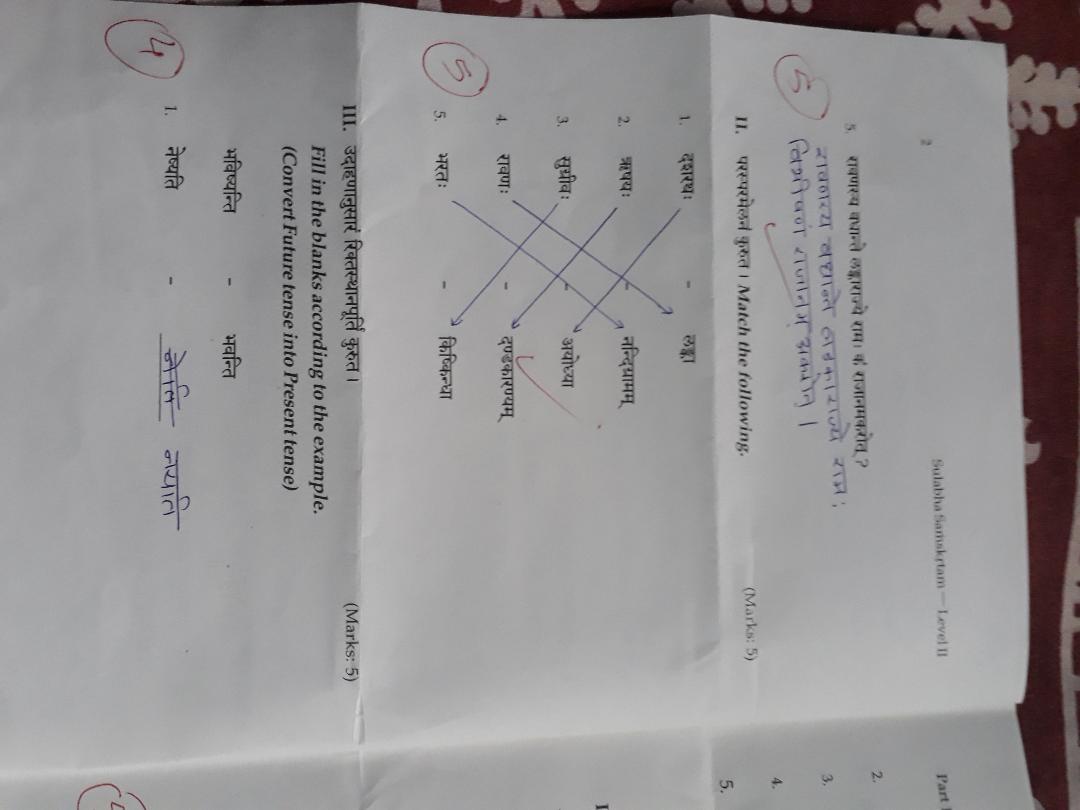 2 Sulabha Saṁskṛtam — Level II
5. रावणस्य वधान्ते लङ्काराज्ये रामः कं राजानमकरोत् ?
रावणस्य वधान्ते लङकाराज्ये रामः
विभीषणं राजानम् अकरोत् ।
5
II. परस्परमेलनं कुरुत । Match the following. (Marks: 5)
1. दशरथः - लङ्का
2. ऋषयः - नन्दिग्रामम्
3. सुग्रीवः - अयोध्या
4. रावणः - दण्डकारण्यम्
5. भरतः - किष्किन्धा
5
III. उदाहणानुसारं रिक्तस्थानपूर्तिं कुरुत । (Marks: 5)
Fill in the blanks according to the example.
(Convert Future tense into Present tense)
भविष्यन्ति - भवन्ति
1. नेष्यति - नेति नयति
4
Part
2.
3.
4.
5.